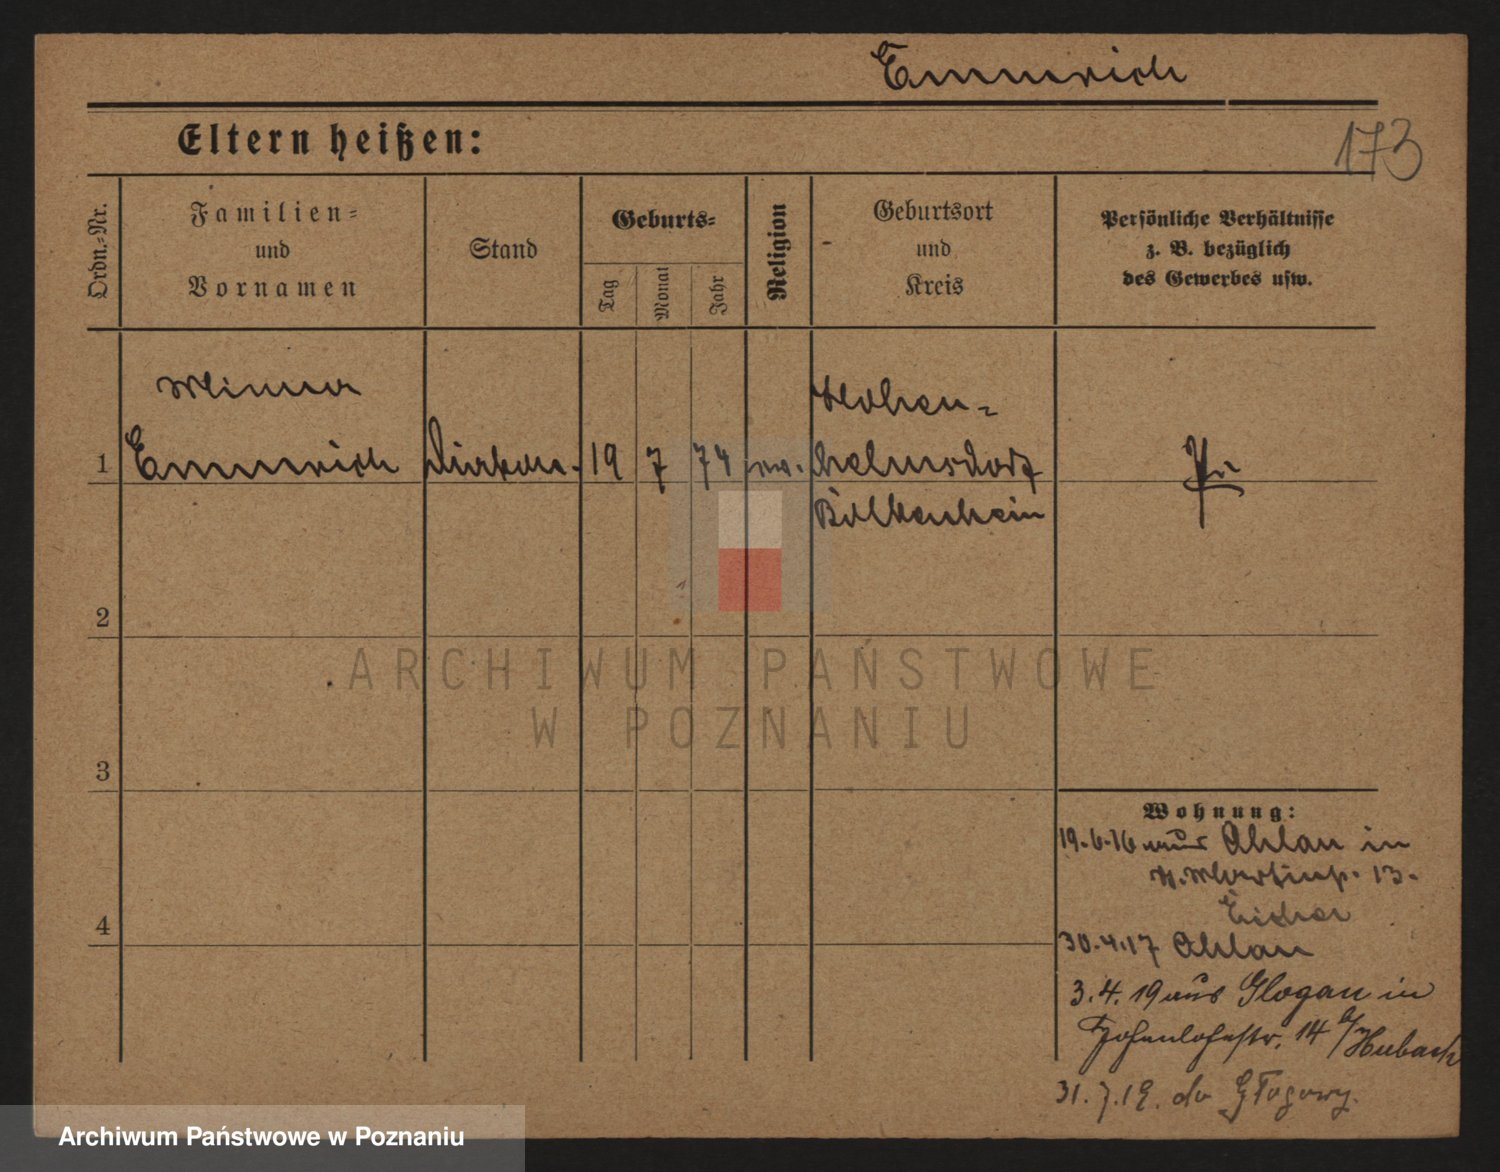 Emmerich
Eltern heißen:
173
Ordn.-Nr.
Familien-
und
Vornamen
Stand
Geburts-
Tag
Monat
Jahr
Religion
Geburtsort
und
Kreis
Persönliche Verhältnisse
z. B. bezüglich
des Gewerbes usw.
Minna
Emmerich
19
7
74
Hohen-
helmsdorf
Bolkenhain
Pr
1
2
3
4
Wohnung:
19.6.16 aus Ohlau in
13.
30.4.17 Ohlau
3.4.19 aus Glogau in
Hohenlohestr. 14 b/Hubach
31.7.19. do Głogowy.
ARCHIWUM PAŃSTWOWE
W POZNANIU
Archiwum Państwowe w Poznaniu